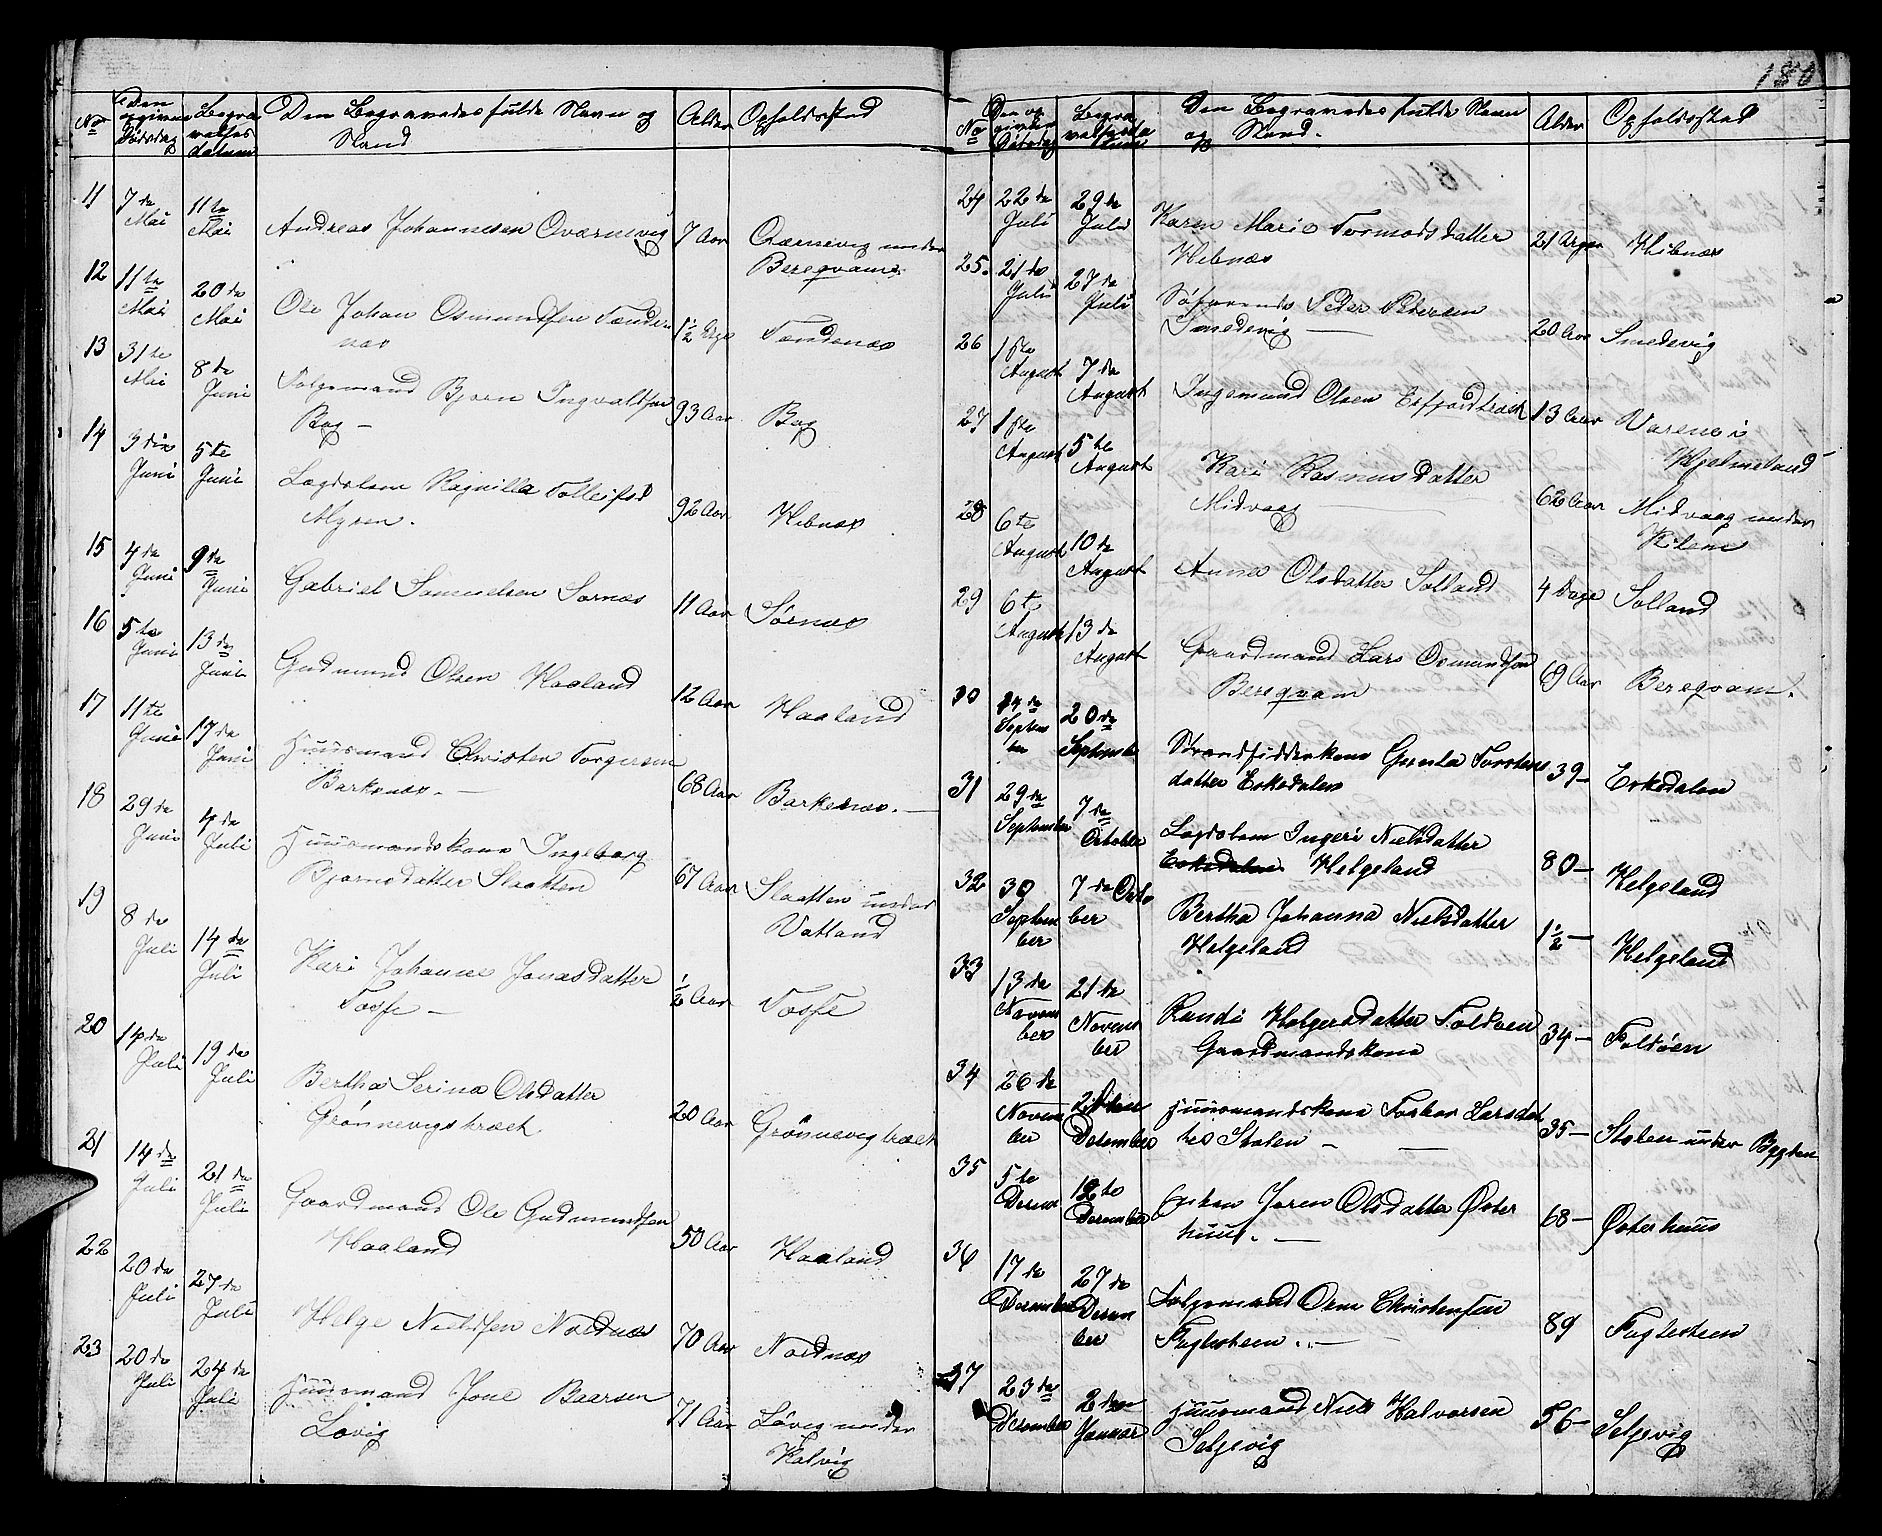 180
No Den opgivne Dødsdag Begravelses datum Den Begravedes fulde Navn og Stand Alder Opholdssted
11 7de Mai 11te Mai Andreas Johannesen Qværnevig 7 Aar Qværnevig under Bereqvam
12 11te Mai 20de Mai Ole Johan Osmundsen Tendenæs 1½ Tendenæs
13 31te Mai 8de Juni Følgemand Bjørn Ingvaldsen Bog – 93 Aar Bog
14 3die Juni 5te Juni Lægdslem Ragnilla Tolleifsd 92 Aar Hebnæs
15 4de Juni 9de Juni Gabriel Samuelsen Sørnæs 11 Aar Sørnæs
16 5te Juni 13de Juni Gudmund Olsen Haaland 12 Aar Haaland
17 11te Juni 17de Juni Huusmand Christen Torgersen Barkenæs. – 68 Aar Barkenæs. –
18 29de Juni 4de Juli Huusmandskone Ingeborg Bjørnsdatter Slaatten 67 Aar Slaatten under Vatland
19 8de Juli 14de Juli Kari Johanne Jonasdatter Tosse – ½ Aar Tosse
20 14de Juli 19de Juli Bertha Serina Olsdatter Grønnevigtræet 20 Aar Grønnevigtræet
21 14de Juli 21de Juli Gaardmand Ole Gudmundsen Haaland 50 Aar Haaland
22 20de Juli 27de Juli Helge Nielsen Nordnæs 70 Aar Nordnæs
23 20de Juli 24de Juli Huusmand Jone Baarsen Løvig 71 Aar Løvig under Halvig
No Den opgivne Dødsdag Begravelsesdatum Den Begravedes fulde Navn og Stand. Alder Opholdssted
24 22de Juli 29de Juli Karen Marie Tormodsdatter Hebnæs 21 Hebnæs
25. 21de Juli 27de Juli Søfarende Peder Pedersen Smedevig – 20 Aar Smedevig
26 1ste August 7de August Ingemund Olsen Erfjordtræet 13 Aar Varene i Hjelmeland
27 1ste August 5te August Kari Rasmusdatter Midvaag 62 Aar Midvaag under Kilene
28 6te August 10de August Anna Olsdatter Solland 4 Dage Solland
29 6te August 13de August Gaardmand Lars Osmundsen Bereqvam 69 Aar Bereqvam.
30 14de September 20de September Strandsidderkone Gunla Torstensdatter Eskedalen 39 – Eskedalen
31 29de September 7de October Lægdslem Ingeri Nielsdatter Helgeland 80 – Helgeland
32 30 September 7de October Bertha Johanna Nielsdatter Helgeland 1½ – Helgeland
33 13de November 21de November Randi Helgesdatter Foldøen Gaardmandskone 34 – Foldøen
34 26de November December Huusmandskone Torbor Larsdatter Stølen – 35 – Stølen under Bygten
35 5te Decem 12te December Enken Joren Olsdatter Østerhuus. – 68 – Østerhuus
36 17de December 27de December Følgemand Orm Christensen Fuglesteen. – 89 Fuglesteen
37 23de December 2den Januar Huusmand Niels Halvorsen Selgevig 56 – Selgevig